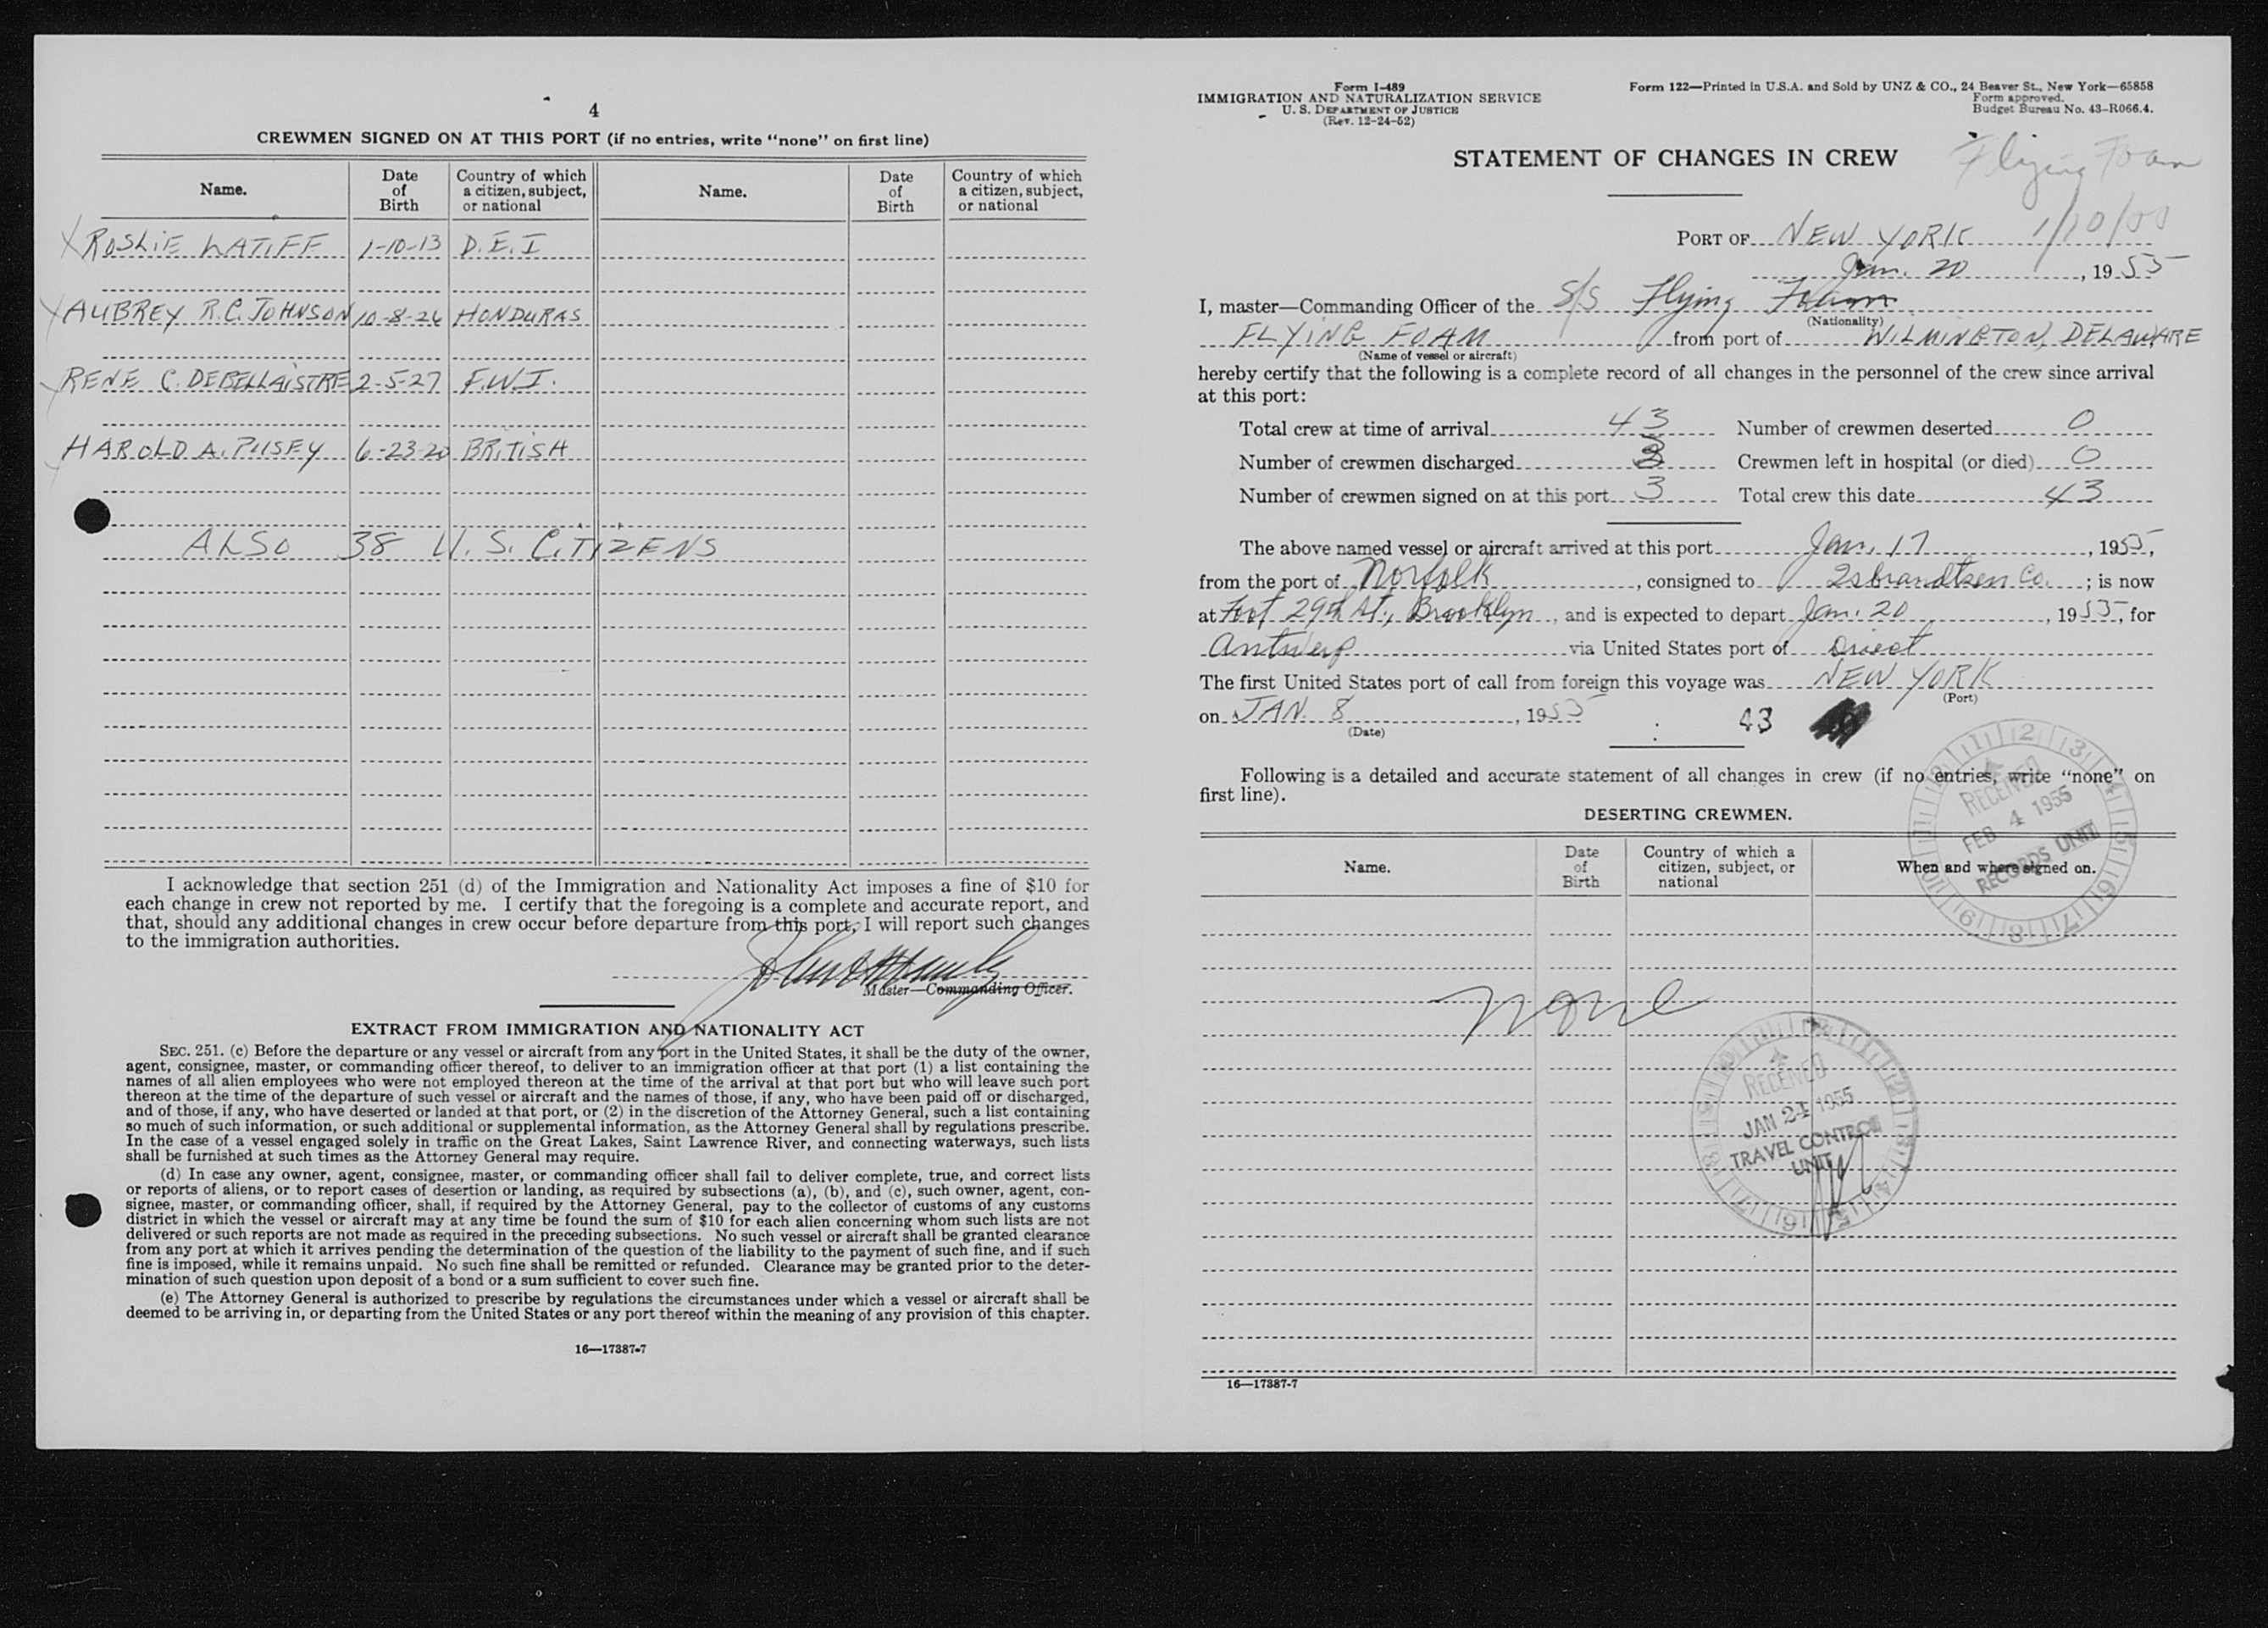 4
CREWMEN SIGNED ON AT THIS PORT (if no entries, write "none" on first line)
Name. Date of Birth Country of which a citizen, subject, or national Name. Date of Birth Country of which a citizen, subject, or national
X ROSLIE LATIFF 1-10-13 D.E.I
X AUBREY R.C. JOHNSON 10-8-26 HONDURAS
X RENE C. DEBELLAISTRE 2-5-27 F.W.I.
X HAROLD A. PUSEY 6-23-20 BRITISH
ALSO 38 U.S. CITIZENS
I acknowledge that section 251 (d) of the Immigration and Nationality Act imposes a fine of $10 for
each change in crew not reported by me. I certify that the foregoing is a complete and accurate report, and
that, should any additional changes in crew occur before departure from this port, I will report such changes
to the immigration authorities.
Master—Commanding Officer.
EXTRACT FROM IMMIGRATION AND NATIONALITY ACT
SEC. 251. (c) Before the departure or any vessel or aircraft from any port in the United States, it shall be the duty of the owner,
agent, consignee, master, or commanding officer thereof, to deliver to an immigration officer at that port (1) a list containing the
names of all alien employees who were not employed thereon at the time of the arrival at that port but who will leave such port
thereon at the time of the departure of such vessel or aircraft and the names of those, if any, who have been paid off or discharged,
and of those, if any, who have deserted or landed at that port, or (2) in the discretion of the Attorney General, such a list containing
so much of such information, or such additional or supplemental information, as the Attorney General shall by regulations prescribe.
In the case of a vessel engaged solely in traffic on the Great Lakes, Saint Lawrence River, and connecting waterways, such lists
shall be furnished at such times as the Attorney General may require.
(d) In case any owner, agent, consignee, master, or commanding officer shall fail to deliver complete, true, and correct lists
or reports of aliens, or to report cases of desertion or landing, as required by subsections (a), (b), and (c), such owner, agent, con-
signee, master, or commanding officer, shall, if required by the Attorney General, pay to the collector of customs of any customs
district in which the vessel or aircraft may at any time be found the sum of $10 for each alien concerning whom such lists are not
delivered or such reports are not made as required in the preceding subsections. No such vessel or aircraft shall be granted clearance
from any port at which it arrives pending the determination of the question of the liability to the payment of such fine, and if such
fine is imposed, while it remains unpaid. No such fine shall be remitted or refunded. Clearance may be granted prior to the deter-
mination of such question upon deposit of a bond or a sum sufficient to cover such fine.
(e) The Attorney General is authorized to prescribe by regulations the circumstances under which a vessel or aircraft shall be
deemed to be arriving in, or departing from the United States or any port thereof within the meaning of any provision of this chapter.
16—17387-7
Form I-489
IMMIGRATION AND NATURALIZATION SERVICE
U. S. DEPARTMENT OF JUSTICE
(Rev. 12-24-52)
Form 122—Printed in U.S.A. and Sold by UNZ & CO., 24 Beaver St., New York—65858
Form approved.
Budget Bureau No. 43-R066.4.
STATEMENT OF CHANGES IN CREW
Flying Foam
PORT OF NEW YORK
Jan. 20, 1955
I, master—Commanding Officer of the S/S Flying Foam
(Nationality)
FLYING FOAM from port of WILMINGTON, DELAWARE
(Name of vessel or aircraft)
hereby certify that the following is a complete record of all changes in the personnel of the crew since arrival
at this port:
Total crew at time of arrival 43 Number of crewmen deserted 0
Number of crewmen discharged 3 Crewmen left in hospital (or died) 0
Number of crewmen signed on at this port 3 Total crew this date 43
The above named vessel or aircraft arrived at this port Jan. 17, 1955,
from the port of Norfolk, consigned to Isbrandtsen Co.; is now
at Foot 29th St., Brooklyn, and is expected to depart Jan. 20, 1955, for
Antwerp via United States port of Direct
The first United States port of call from foreign this voyage was NEW YORK
(Port)
on JAN. 8, 1955 43
(Date)
Following is a detailed and accurate statement of all changes in crew (if no entries, write "none" on
first line).
DESERTING CREWMEN.
Name. Date of Birth Country of which a citizen, subject, or national When and where signed on.
RECEIVED
FEB 4 1955
RECORDS UNIT
none
RECEIVED
JAN 24 1955
TRAVEL CONTROL
UNIT
16—17387-7